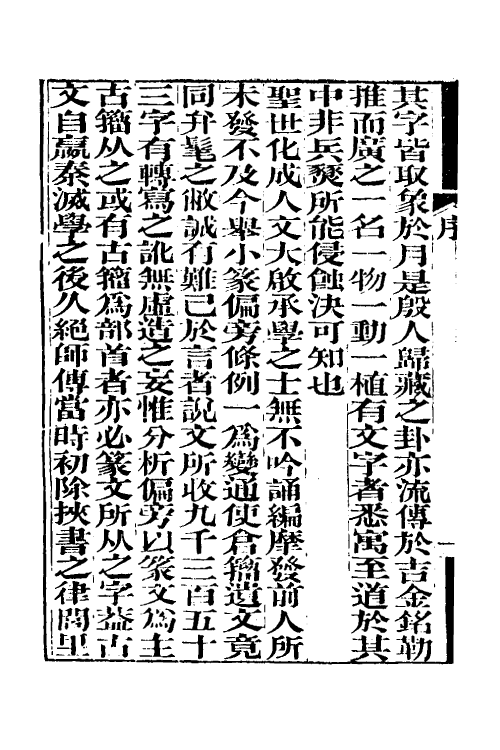 其字皆取象於月是殷人歸藏之卦亦流傳於吉金銘勒
推而廣之一名一物一動一植有文字者悉寓至道於其
中非兵燹所能侵蝕決可知也
聖世化成人文大啟承學之士無不吟誦編摩發前人所
未發不及今舉小篆偏旁條例一爲變通使倉籒遺文竟
同弁髦之敝誠有難已於言者說文所收九千三百五十
三字有轉寫之訛無虛造之妄惟分析偏旁以篆文爲主
古籒从之或有古籒爲部首者亦必篆文所从之字益古
文自嬴秦滅學之後久絕師傳當時初除挾書之律閭里
序
一